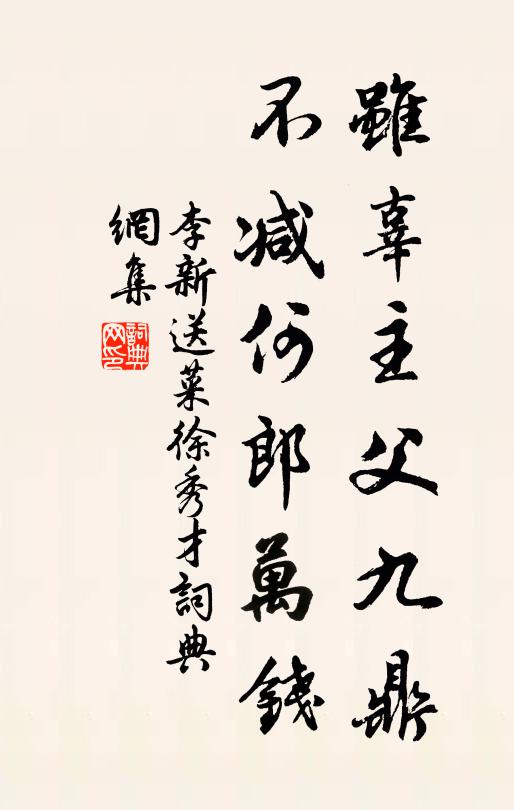 雖辜主父九鼎
不減何郎萬錢
李新送菜徐秀才詞典
網集
詞典网印